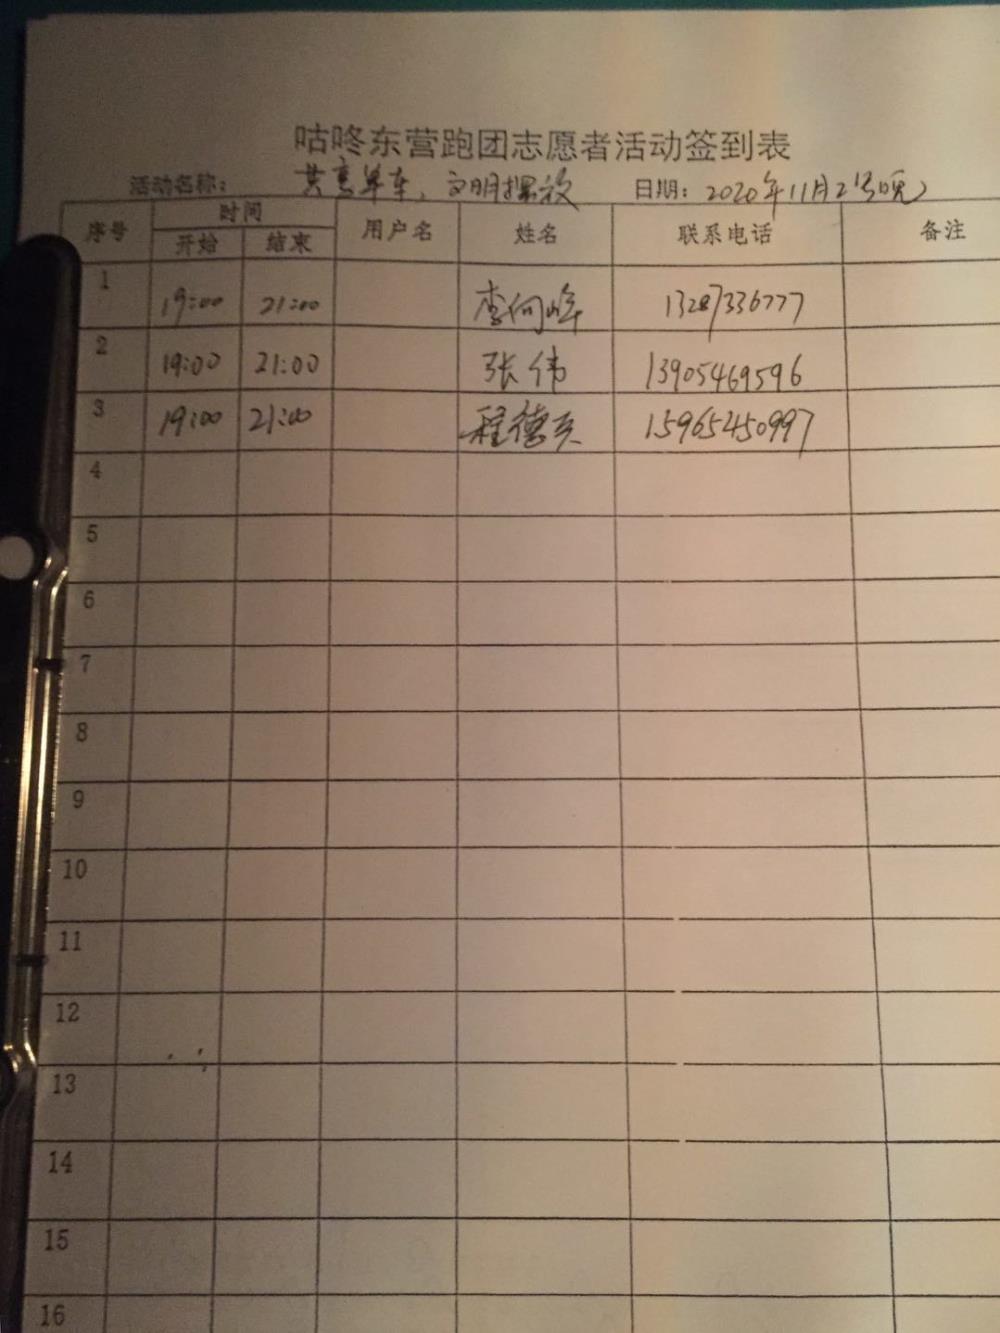 咕咚东营跑团志愿者活动签到表
活动名称: 共享单车,文明摆放 日期: 2020年11月2号晚
序号 时间 用户名 姓名 联系电话 备注
开始 结束
1 19:00 21:00 李向峰 13287336777
2 19:00 21:00 张伟 13905469596
3 19:00 21:00 程德 15965450997
4
5
6
7
8
9
10
11
12
13
14
15
16